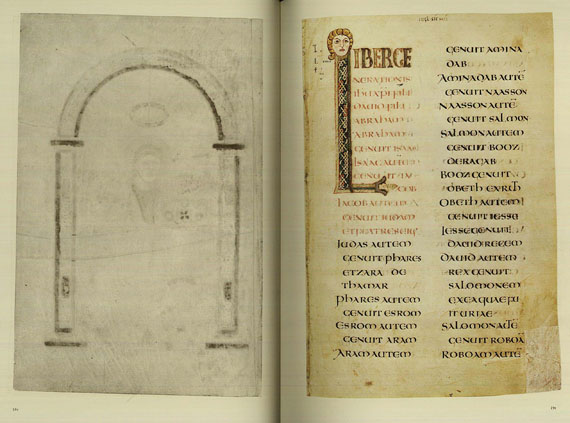 LIBERGE
NERATIONIS
IHUXPI FILII
DAUID FILI
ABRAHAM
ABRAHAM
GENUIT ISAAC
ISAAC AUTEM
GENUIT IA
COB
IACOB AUTEM
GENUIT IUDAM
ET FRATRES EIUS
IUDAS AUTEM
GENUIT PHARES
ET ZARA DE
THAMAR
PHARES AUTEM
GENUIT ESROM
ESROM AUTEM
GENUIT ARAM
ARAM AUTEM
GENUIT AMINA
DAB
AMINADAB AUTĒ
GENUIT NAASSON
NAASSON AUTĒ
GENUIT SALMON
SALMON AUTEM
GENUIT BOOZ
DE RACAB
BOOZ GENUIT
OBETH EX RUTH
OBETH AUTEM
GENUIT IESSE
IESSE GENUIT
DAUID REGEM
DAUID AUTEM
REX GENUIT
SALOMONEM
EX EA QUAE FU
IT URIAE
SALOMON AUTĒ
GENUIT ROBOĀ
ROBOAM AUTĒ